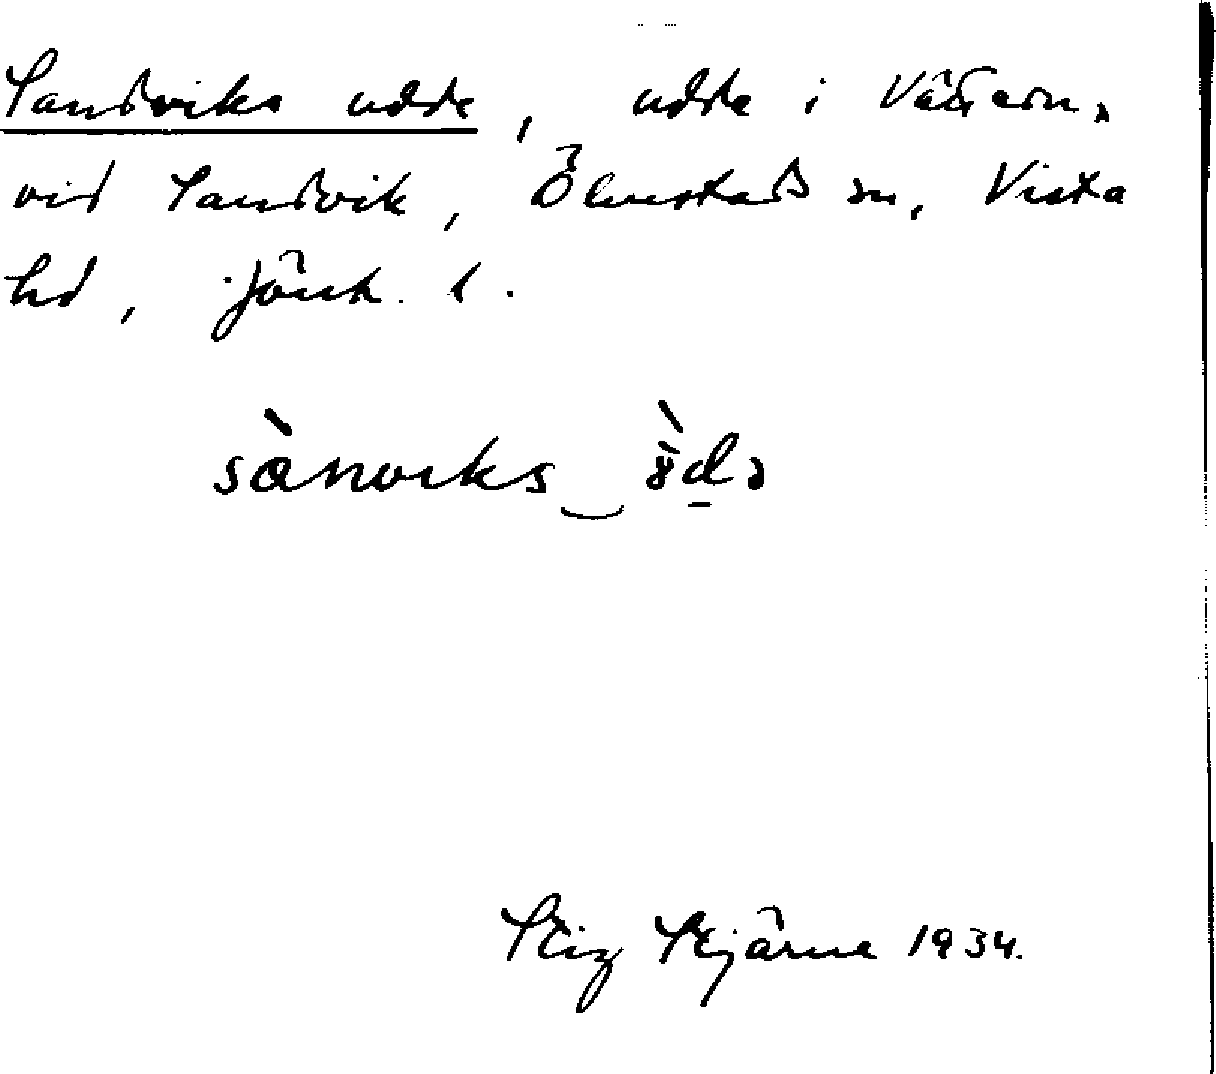 Sandviks udde, udde i Vättern,
vid Sandvik, Ölmstads sn, Vista
hd, Jönk. l.
sànviks‿
Stig Stjärne 1934.